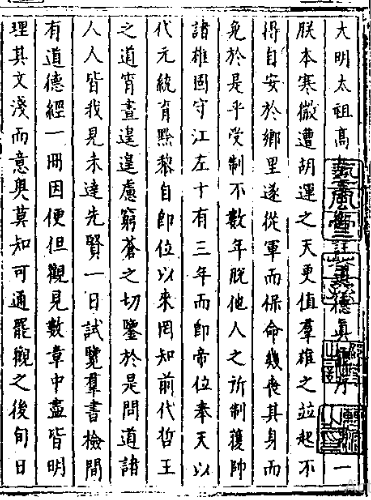 大明太祖高皇帝御註道德真經序 一
朕本寒微遭胡運之天更值羣雄之並起不
得自安於鄉里遂從軍而保命幾喪其身而
免於是乎受制不數年脫他人之所制獲帥
諸雄固守江左十有三年而即帝位奉天以
代元統育黔黎自即位以來罔知前代哲王
之道宵晝遑遑慮窮蒼之切鑒於是問道諸
人人皆我見未達先賢一日試覽羣書檢間
有道德經一冊因便但觀見數章中盡皆明
理其文淺而意奧莫知可通罷觀之後旬日